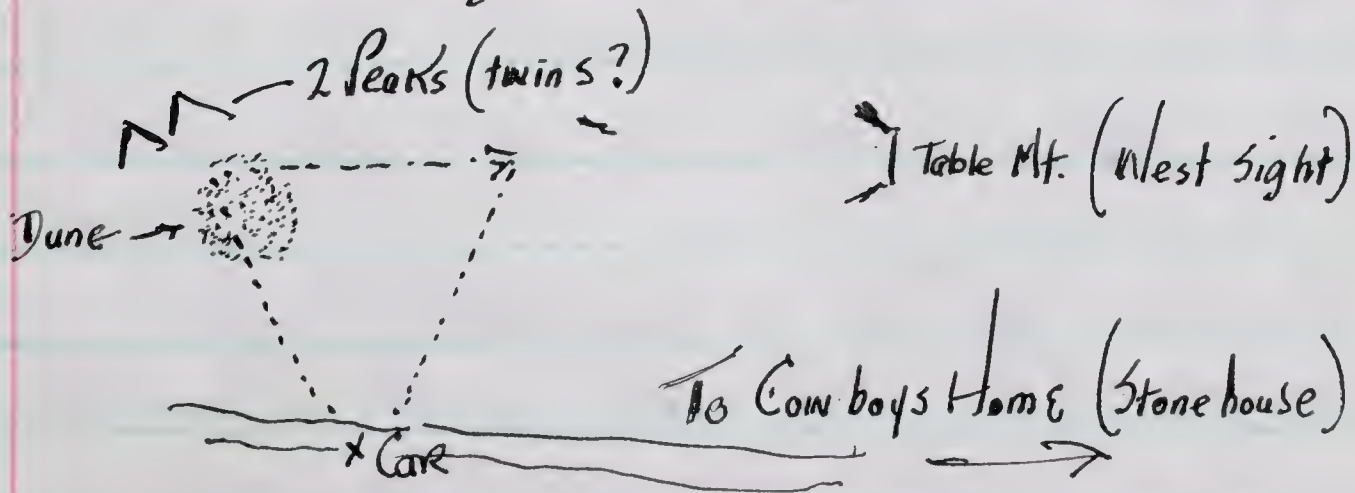 2 Peaks (twins?)
Table Mt. (West Sight)
Dune
To Cowboys Home (Stonehouse)
x Cave